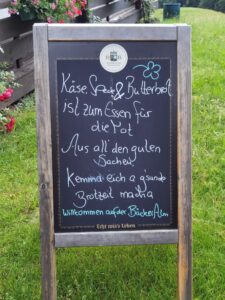 Käse, Speck & Butterbrot
ist zum Essen für
die Not
Aus all' den guten
Sachen
Kemma eich a g'sunde
Brotzeit macha
Willkommen auf der BäckerAlm
Echt mei's Leben